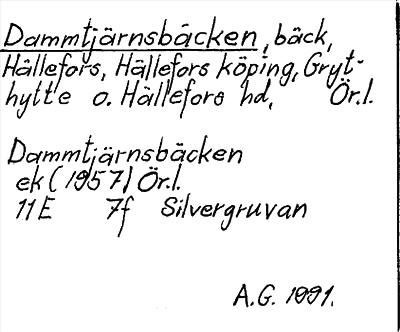 Dammtjärnsbäcken, bäck,
Hällefors, Hällefors köping, Gryt-
hytte o. Hällefors hd, Ör.l.
Dammtjärnsbäcken
ek (1957) Ör.l.
11E 7f Silvergruvan
A.G. 1991.